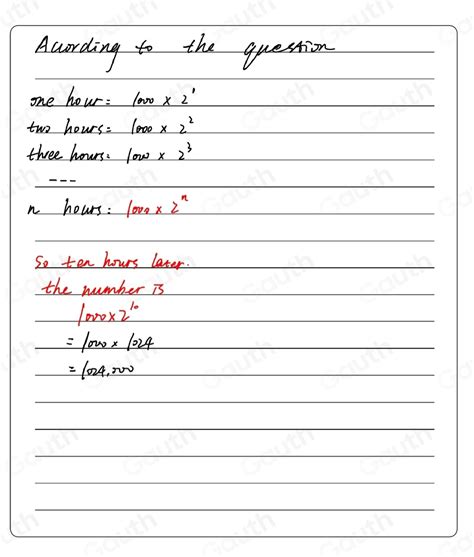 According to the question
one hour: 1000 x 2¹
two hours: 1000 x 2²
three hours: 1000 x 2³
---
n hours: 1000 x 2ⁿ
So ten hours later.
the number is
1000x2¹⁰
= 1000 x 1024
= 1024,000